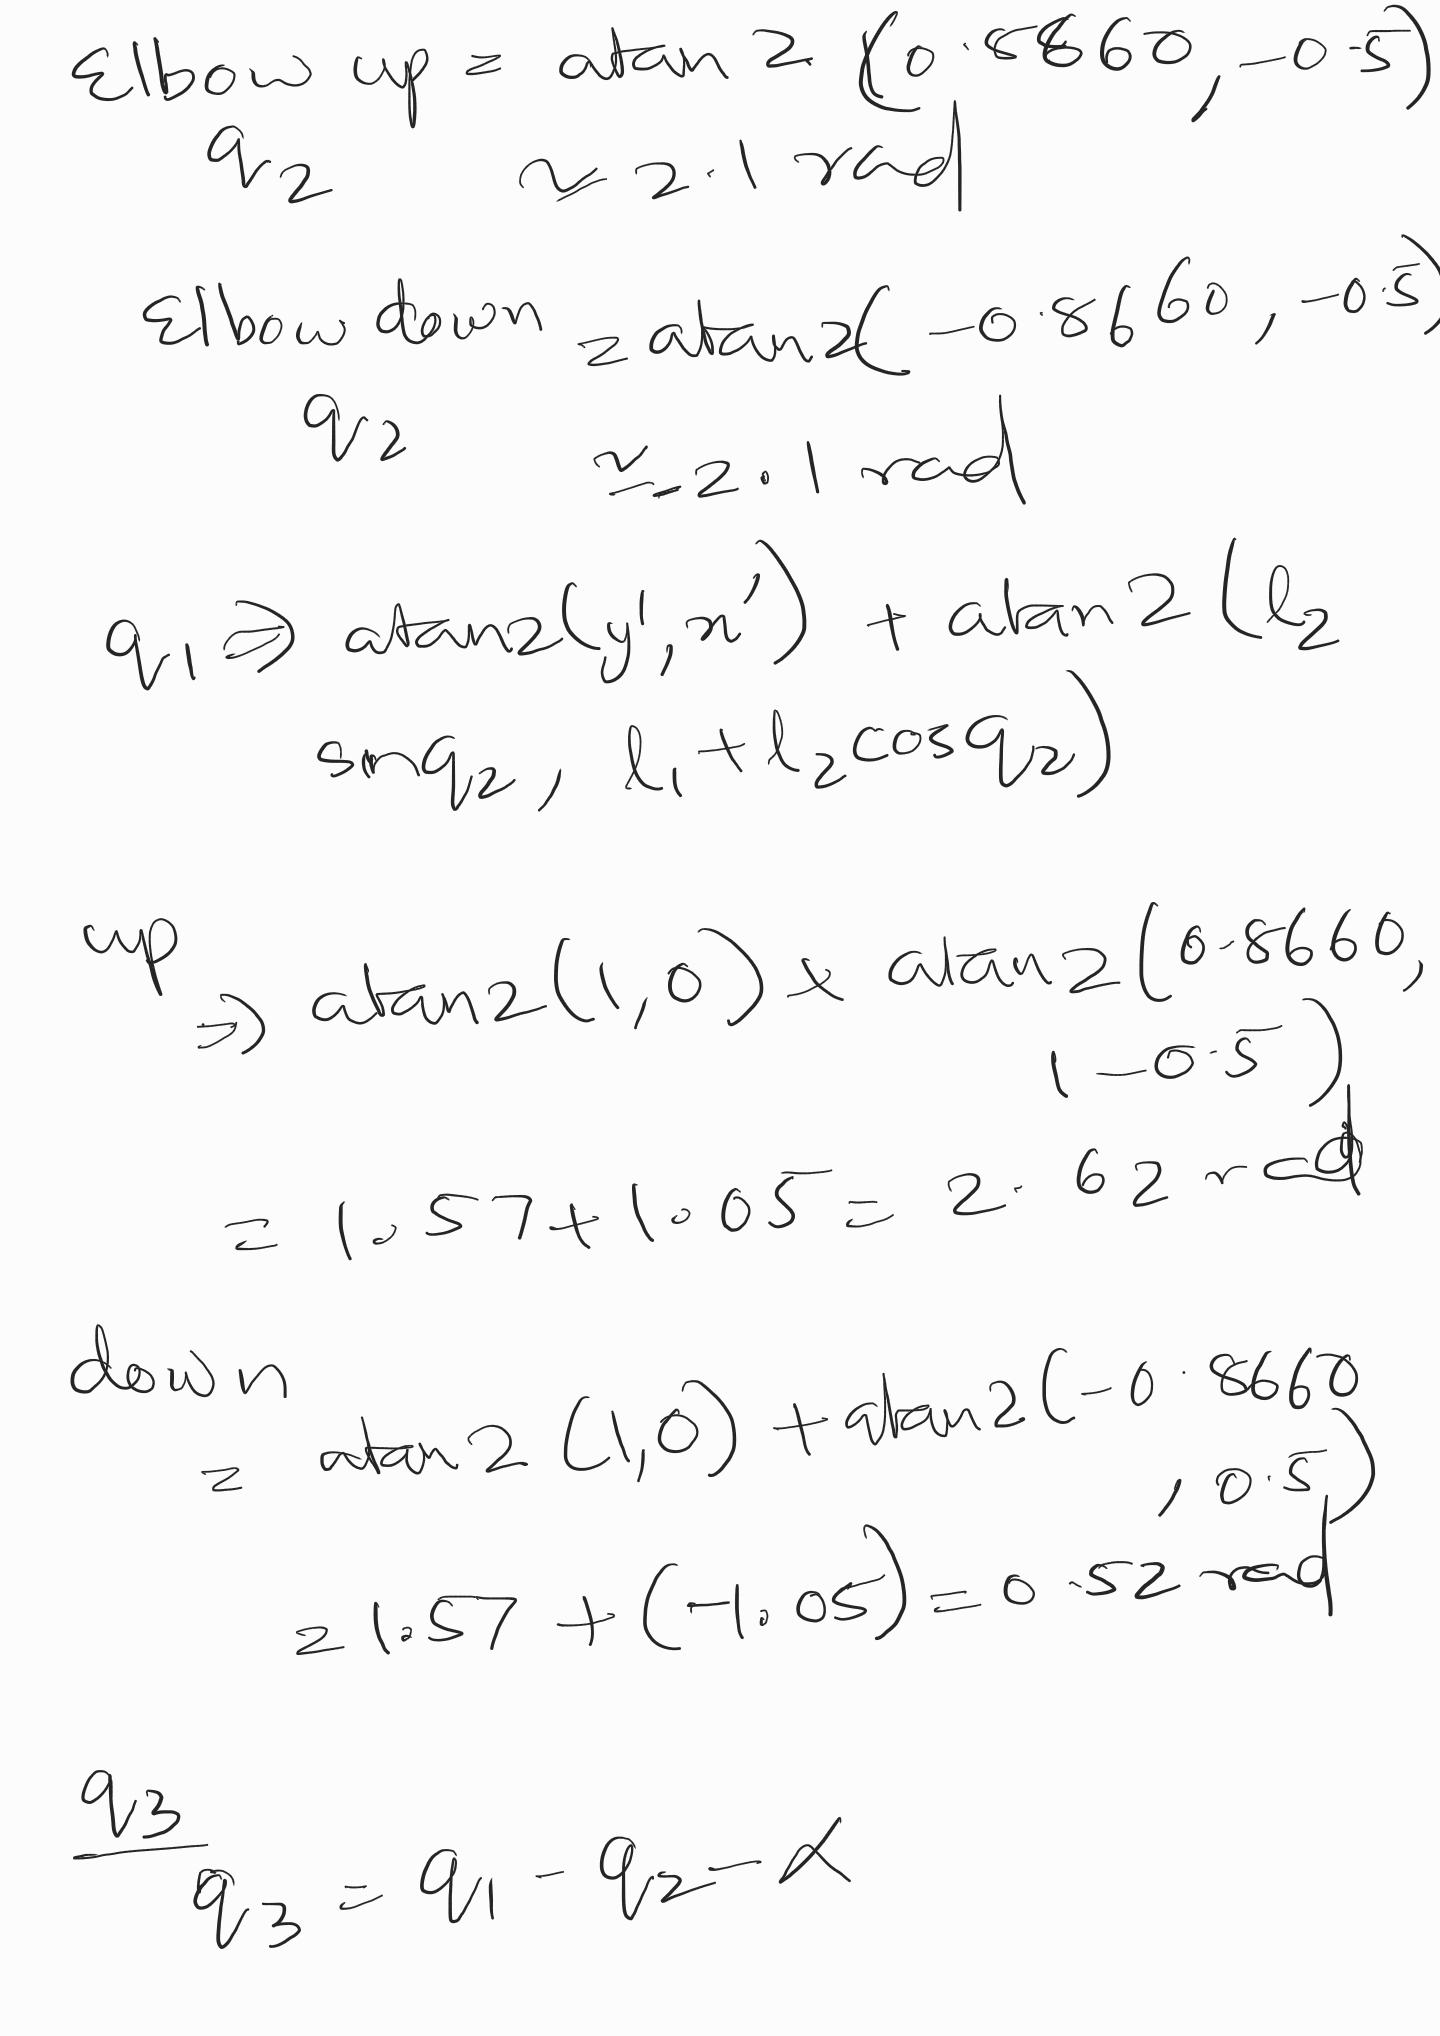 Elbow up = atan2 (0.8860, -0.5)
q2 ≃ 2.1 rad
Elbow down = atan2(-0.8660, -0.5)
q2 ≃ -2.1 rad
q1 ⇒ atan2(y', x') + atan2(l2
sinq2, l1+l2cosq2)
up ⇒ atan2(1,0) + atan2(0.8660,
1-0.5)
= 1.57+1.05 = 2.62 rad
down = atan2(1,0) + atan2(-0.8660
, 0.5)
= 1.57 + (-1.05) = 0.52 rad
q3
q3 = q1 - q2 - α